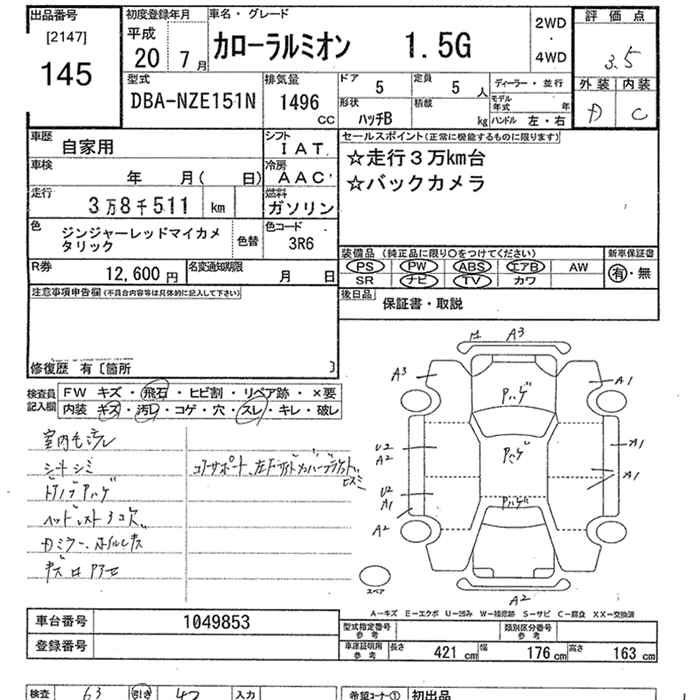 出品番号
[2147]
145
初度登録年月
平成
20 7月
車名・グレード
カローラルミオン 1.5G
2WD
・
4WD
評価点
3.5
外装 内装
C
型式
DBA-NZE151N
排気量
1496
CC
ドア 5
定員 5 人
ディーラー・並行
形状
ハッチB
積載
kg
モデル年式 年
ハンドル 左・右
車歴
自家用
シフト
IAT
車検
年 月( 日)
冷房
AAC
走行
3万8千511 km
燃料
ガソリン
色
ジンジャーレッドマイカメ
タリック
色替
色コード
3R6
R券
12,600 円
名変通知期限
月 日
セールスポイント(正常に機能するものに限ります)
☆走行3万km台
☆バックカメラ
装備品(純正品に限り〇をつけてください)
PS PW ABS エアB AW
SR ナビ TV カワ
新車保証書
有・無
後日品
保証書・取説
注意事項申告欄(不具合内容等は具体的に記入して下さい)
修復歴 有〔箇所 〕
検査員
記入欄
FW キズ・飛石・ヒビ割・リペア跡・×要
内装 キズ・汚レ・コゲ・穴・スレ・キレ・破レ
シートシミ
A3
A3
A1
U2
A2
A1
A1
U2
A1
A2
A2
スペア
A-キズ E-エクボ U-凹み W-補修跡 S-サビ C-腐食 XX-交換済
車台番号
1049853
登録番号
型式指定番号
参考
類別区分番号
参考
車庫証明用
参考
長さ 421 cm 幅 176 cm 高さ 163 cm
検査 63
42 入力
希望コーナー① 初出品